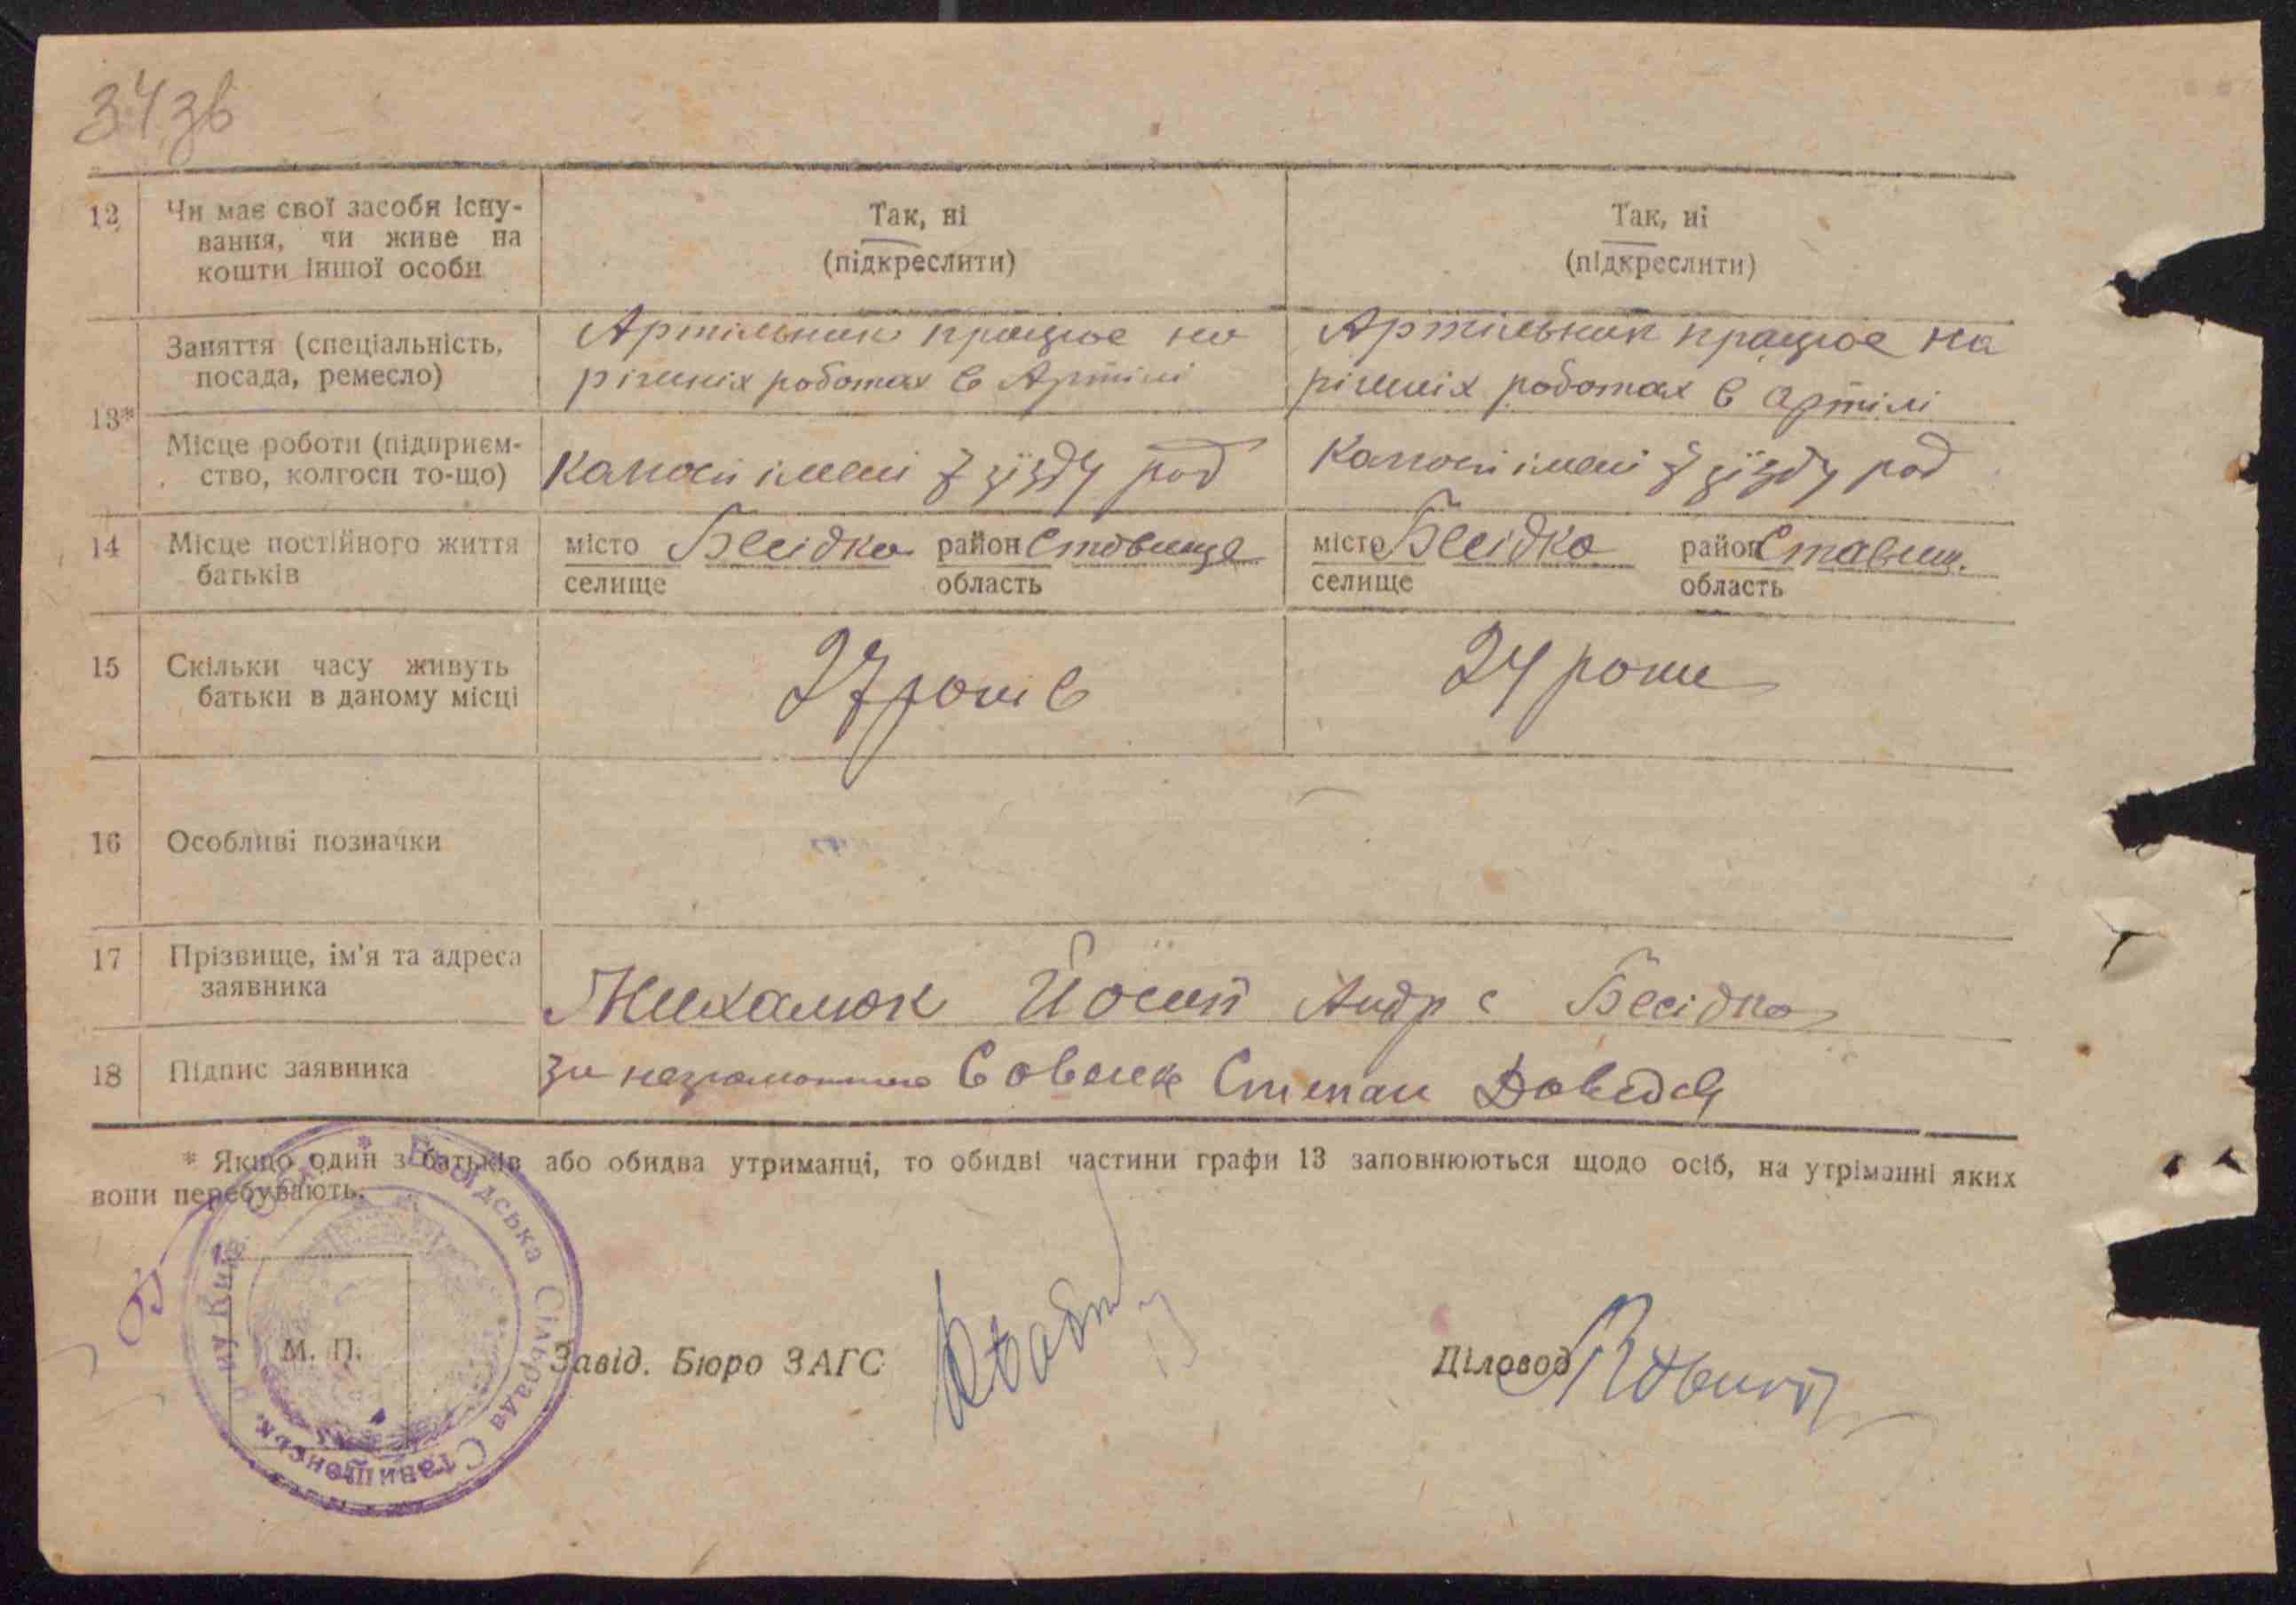 34 зв
12 Чи має свої засоби існу-
вання, чи живе на
кошти іншої особи
Так, ні
(підкреслити)
Так, ні
(підкреслити)
13*
Заняття (спеціальність,
посада, ремесло)
Артільник працює на
різних роботах в Артілі
Артільник працює на
різних роботах в артілі
Місце роботи (підприєм-
ство, колгосп то-що)
імені з'їзду рад
імені з'їзду рад
14 Місце постійного життя
батьків
місто Бесідка район Ставище
селище область
місто Бесідка район Ставищ.
селище область
15 Скільки часу живуть
батьки в даному місці
27 років
24 роки
16 Особливі позначки
17 Прізвище, ім'я та адреса
заявника
Михалюк Йосип Андр с Бесідка
18 Підпис заявника
За неграмотного Степан
* Якщо один з батьків або обидва утриманці, то обидві частини графи 13 заповнюються щодо осіб, на утріманні яких
вони перебувають.
Бесідська Сільрада Ставищенськ.
М. П.
Завід. Бюро ЗАГС
Діловод